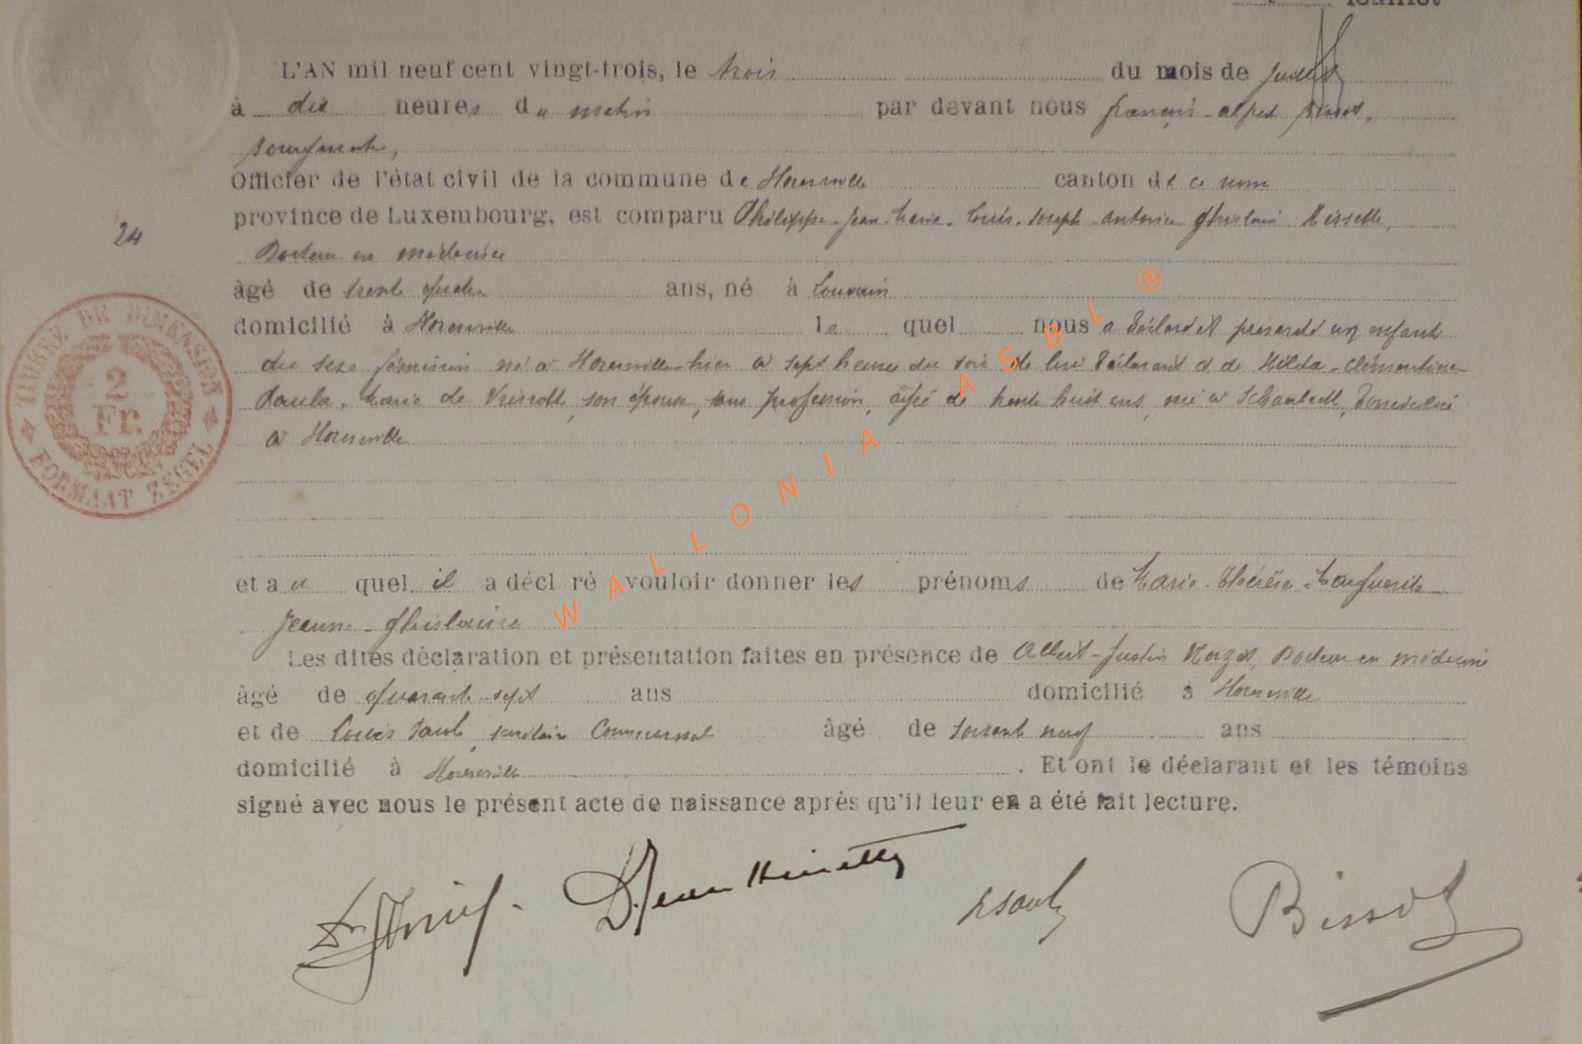 feuillet
L'AN mil neuf cent vingt-trois, le trois du mois de Juillet
à dix heures du matin par devant nous françois-alfred Bissot,
Bourgmestre,
Officier de l'état civil de la commune de canton de ce nom
province de Luxembourg, est comparu Philippe-Jean-Marie-Louis-Joseph-Antoine Ghislain
24
Docteur en médecine
âgé de trente ans, né à Louvain
domicilié à lequel nous a déclaré et présenté un enfant
du sexe féminin né à hier à sept heures du soir de lui déclarant et de Hilda-Clémentine-
Paula-Marie de son épouse, sans profession, âgée de trente huit ans, née à domiciliée
à
TIMBRE DE DIMENSION
2
Fr.
FORMAAT ZEGEL
et au quel il a décl ré vouloir donner les prénoms de Marie-Thérèse-Marguerite-
Jeanne-Ghislaine
Les dites déclaration et présentation faites en présence de Albert-Justin Docteur en médecine
âgé de quarante-sept ans domicilié à
et de Louis secrétaire communal âgé de soixante neuf ans
domicilié à . Et ont le déclarant et les témoins
signé avec nous le présent acte de naissance après qu'il leur en a été fait lecture.
Bissot
WALLONIA ASBL ®